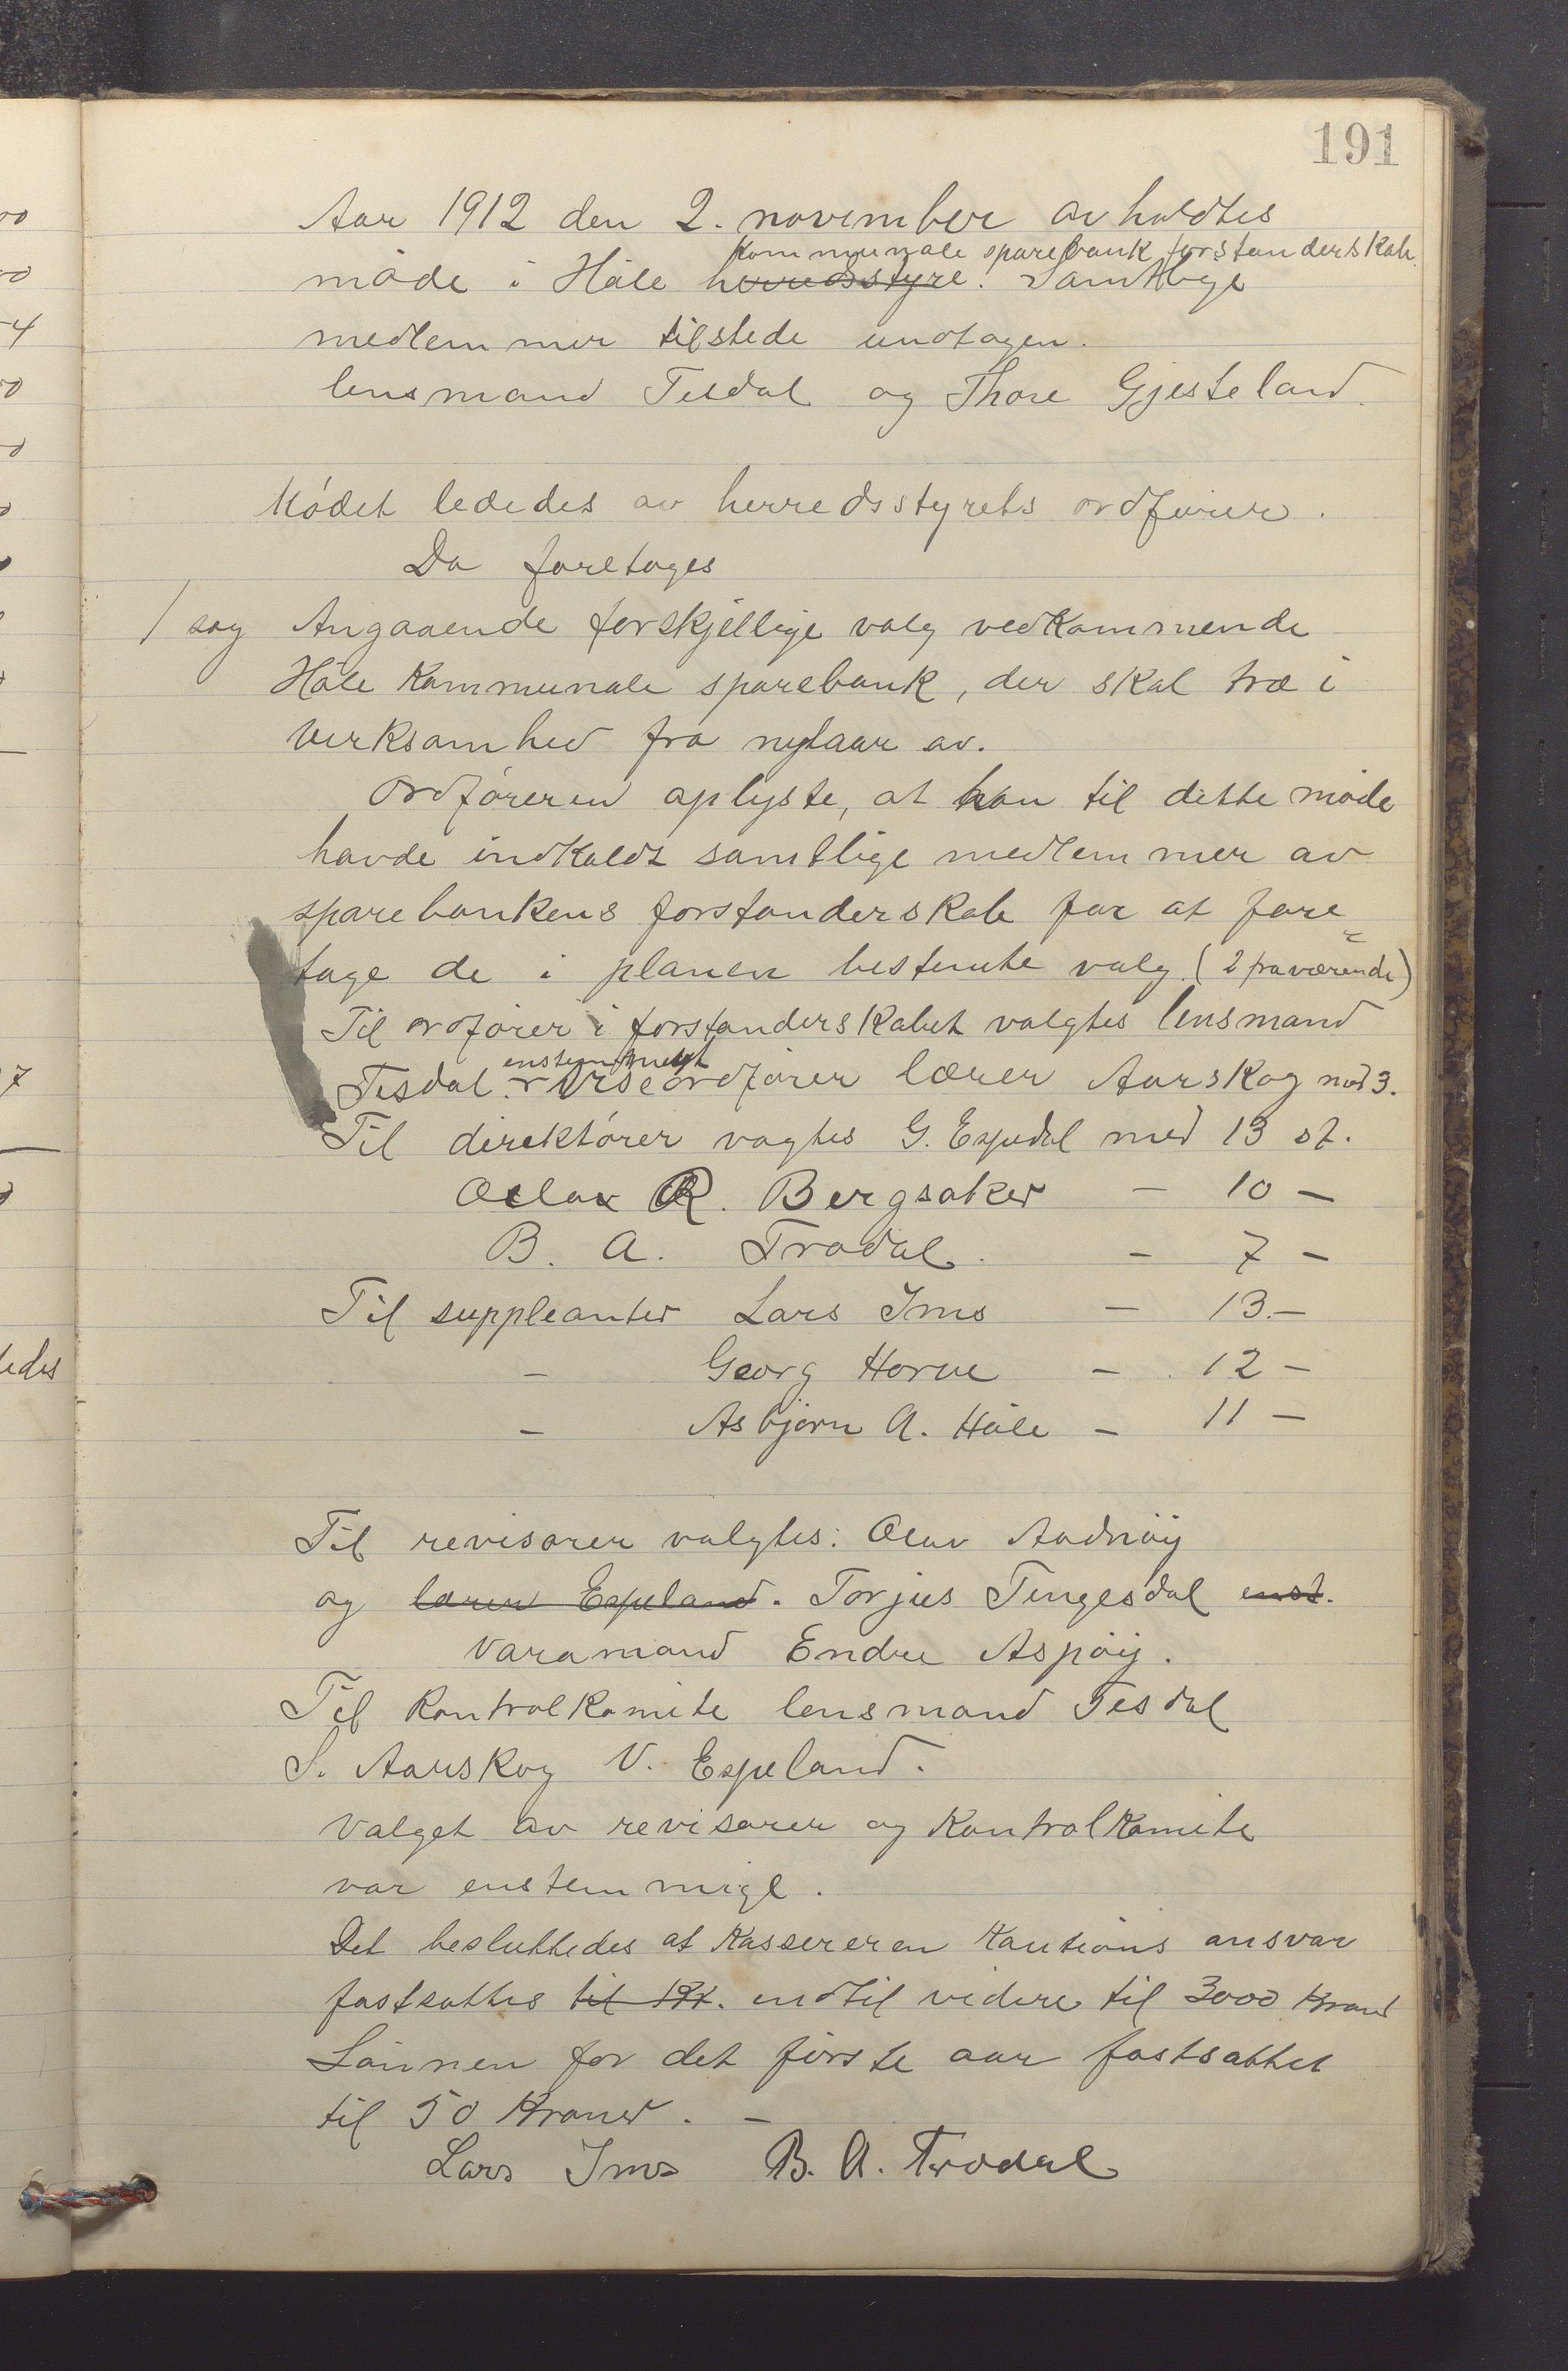 191
Aar 1912 den 2. november avholdtes
kommunale sparebank forstanderskab.
møde i Håle herredsstyre. Samtlige
medlemmer tilstede undtagen.
lensmand Tesdal og Thore Gjesteland.
Mødet lededes av herredsstyrets ordfører.
Da foretoges
1 sag Angaaende forskjellige valg vedkommende
Håle kommunale sparebank, der skal træ i
virksomhed fra nytaar av.
Ordføreren oplyste, at han til dette møde
havde indkaldt samtlige medlemmer av
sparebankens forstanderskab for at fore-
tage de i planen bestemte valg (2 fraværende)
Til ordfører i forstanderskabet valgtes lensmand
enstemmigt
Tesdal. viseordfører lærer Aarskog med 3.
Til direktører vagtes G. Espedal med 13 st.
Olav R. Bergsaker - 10 -
B. A. Trodal. - 7 -
Til suppleanter Lars Ims - 13.-
- Georg Horve - 12 -
- Asbjørn A. Håle - 11 -
Til revisorer valgtes: Olav Aadnøy
og lærer Espeland. Torjus Tengesdal enst.
Varamand Endre Aspøy.
Til kontrolkomite lensmand Tesdal
S. Aarskog V. Espeland.
Valget av revisorer og kontrolkomite
var enstemmigt.
Det besluttedes at kassereren kautions ansvar
fastsattes til indtil videre til 3000 kroner
Lønnen for det første aar fastsattes
til 50 kroner. -
Lars Ims B. A. Trodal
00
0
4
0
7
ledes